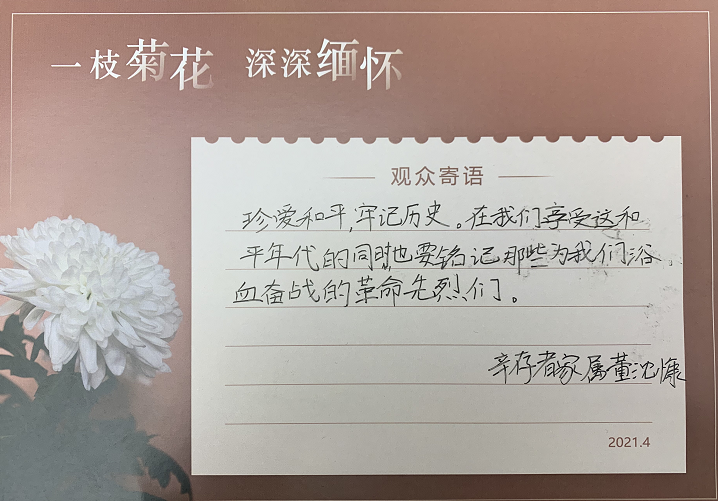 一枝菊花 深深缅怀
观众寄语
珍爱和平,牢记历史。在我们享受这和
平年代的同时也要铭记那些为我们浴
血奋战的革命先烈们。
辛存者家属董沈慷
2021.4